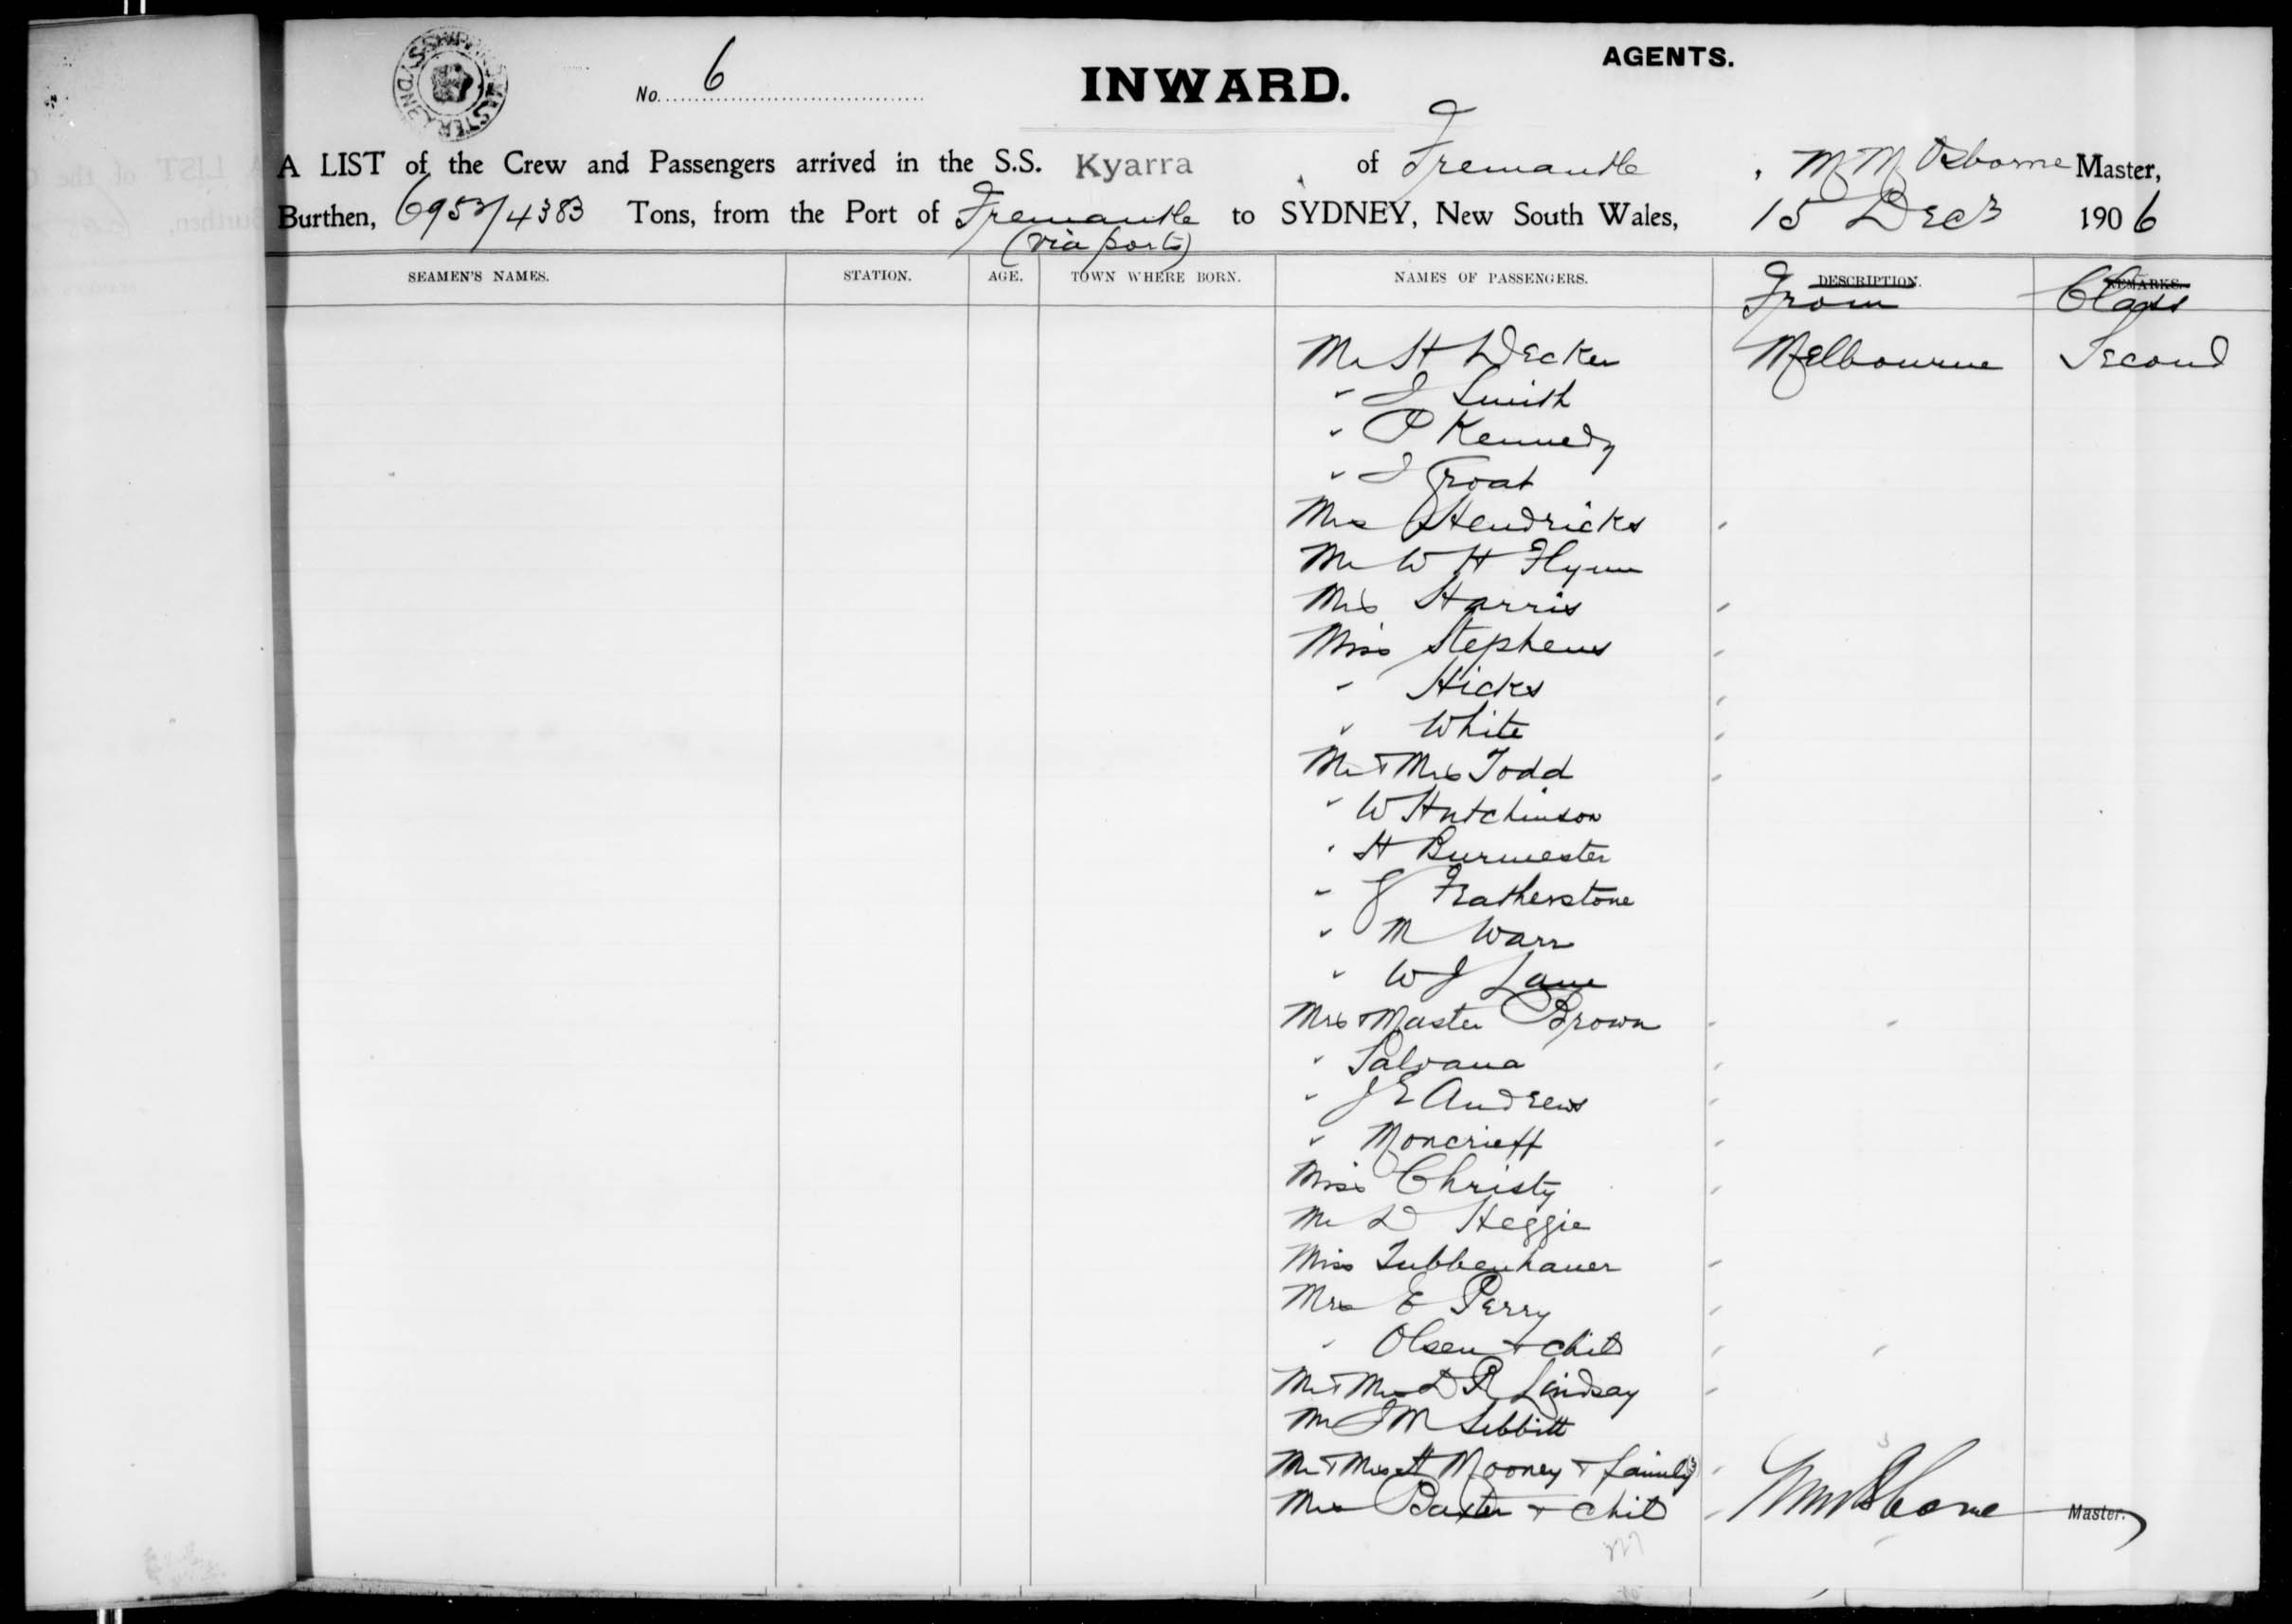 SHIPPING MASTER SYDNEY
AGENTS.
No. 6
INWARD.
A LIST of the Crew and Passengers arrived in the S.S. Kyarra of Fremantle, Osborne Master,
Burthen, 6953/4383 Tons, from the Port of Fremantle to SYDNEY, New South Wales, 15 Decr 1906
(via ports)
SEAMEN'S NAMES. STATION. AGE. TOWN WHERE BORN. NAMES OF PASSENGERS. DESCRIPTION. REMARKS.
From Class
Mr H Decker Melbourne Second
" J Smith
" P Kennedy
" J Groat
Mrs Hendricks
Mr W H Flynn
Mrs Harris
Miss Stephens
" Hicks
" White
Mr & Mrs Todd
" W Hutchinson
" H Burmester
" J Featherstone
" M Warr
" W J Lane
Mrs & Master Brown
" Salvana
" J E Andrews
" Moncrieff
Miss Christy
Mr D Heggie
Miss Tubbenhauer
Mrs E Perry
" Olsen & child
Mr & Mrs D R Lindsay
Mr J M Sibbitt
Mr & Mrs H Mooney & family
Mrs Baxter & child
Osborne Master.